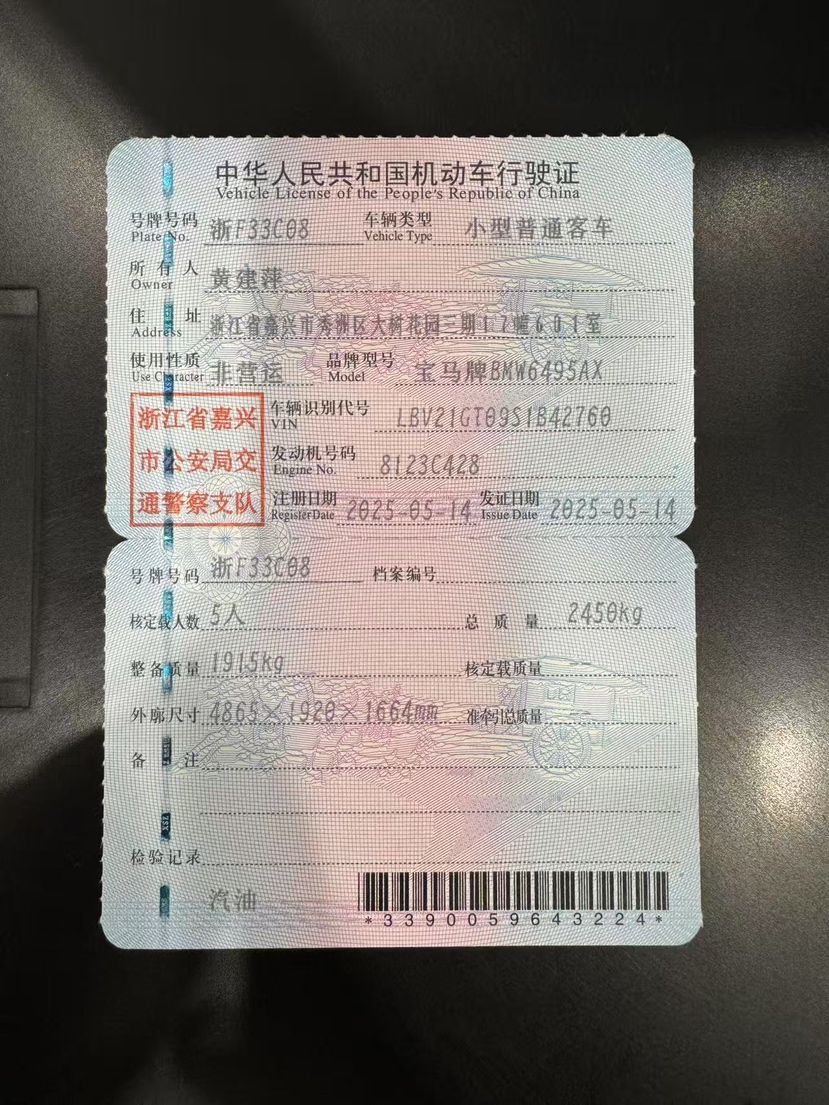 中华人民共和国机动车行驶证
Vehicle License of the People's Republic of China
号牌号码 Plate No. 浙F33C08 车辆类型 Vehicle Type 小型普通客车
所有人 Owner 黄建萍
住址 Address 浙江省嘉兴市秀洲区大树花园三期17幢601室
使用性质 Use Character 非营运 品牌型号 Model 宝马牌BMW6495AX
浙江省嘉兴
市公安局交
通警察支队
车辆识别代号 VIN LBV21GT09S1B42760
发动机号码 Engine No. 8123C428
注册日期 Register Date 2025-05-14 发证日期 Issue Date 2025-05-14
号牌号码 浙F33C08 档案编号
核定载人数 5人 总质量 2450kg
整备质量 1915kg 核定载质量 --
外廓尺寸 4865×1920×1664mm 准牵引总质量 --
备注
检验记录
汽油
*3390059643224*